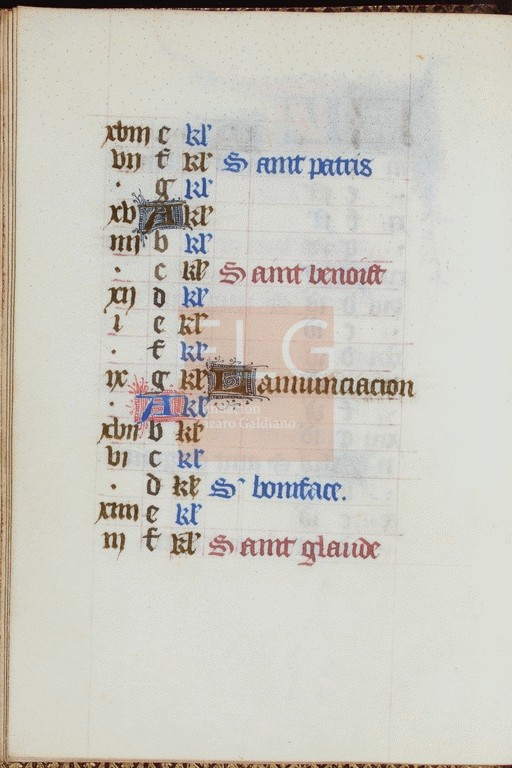 xviii e kl'
vii f kl' Saint patris
. g kl'
xv A kl'
iiii b kl'
. c kl' Saint benoist
xii d kl'
i e kl'
. f kl'
ix g kl' Lannunciacion
. A kl'
xvii b kl'
vi c kl'
. d kl' S' boniface.
xiiii e kl'
iii f kl' Saint glaude
FLG
Fundación
Lázaro Galdiano